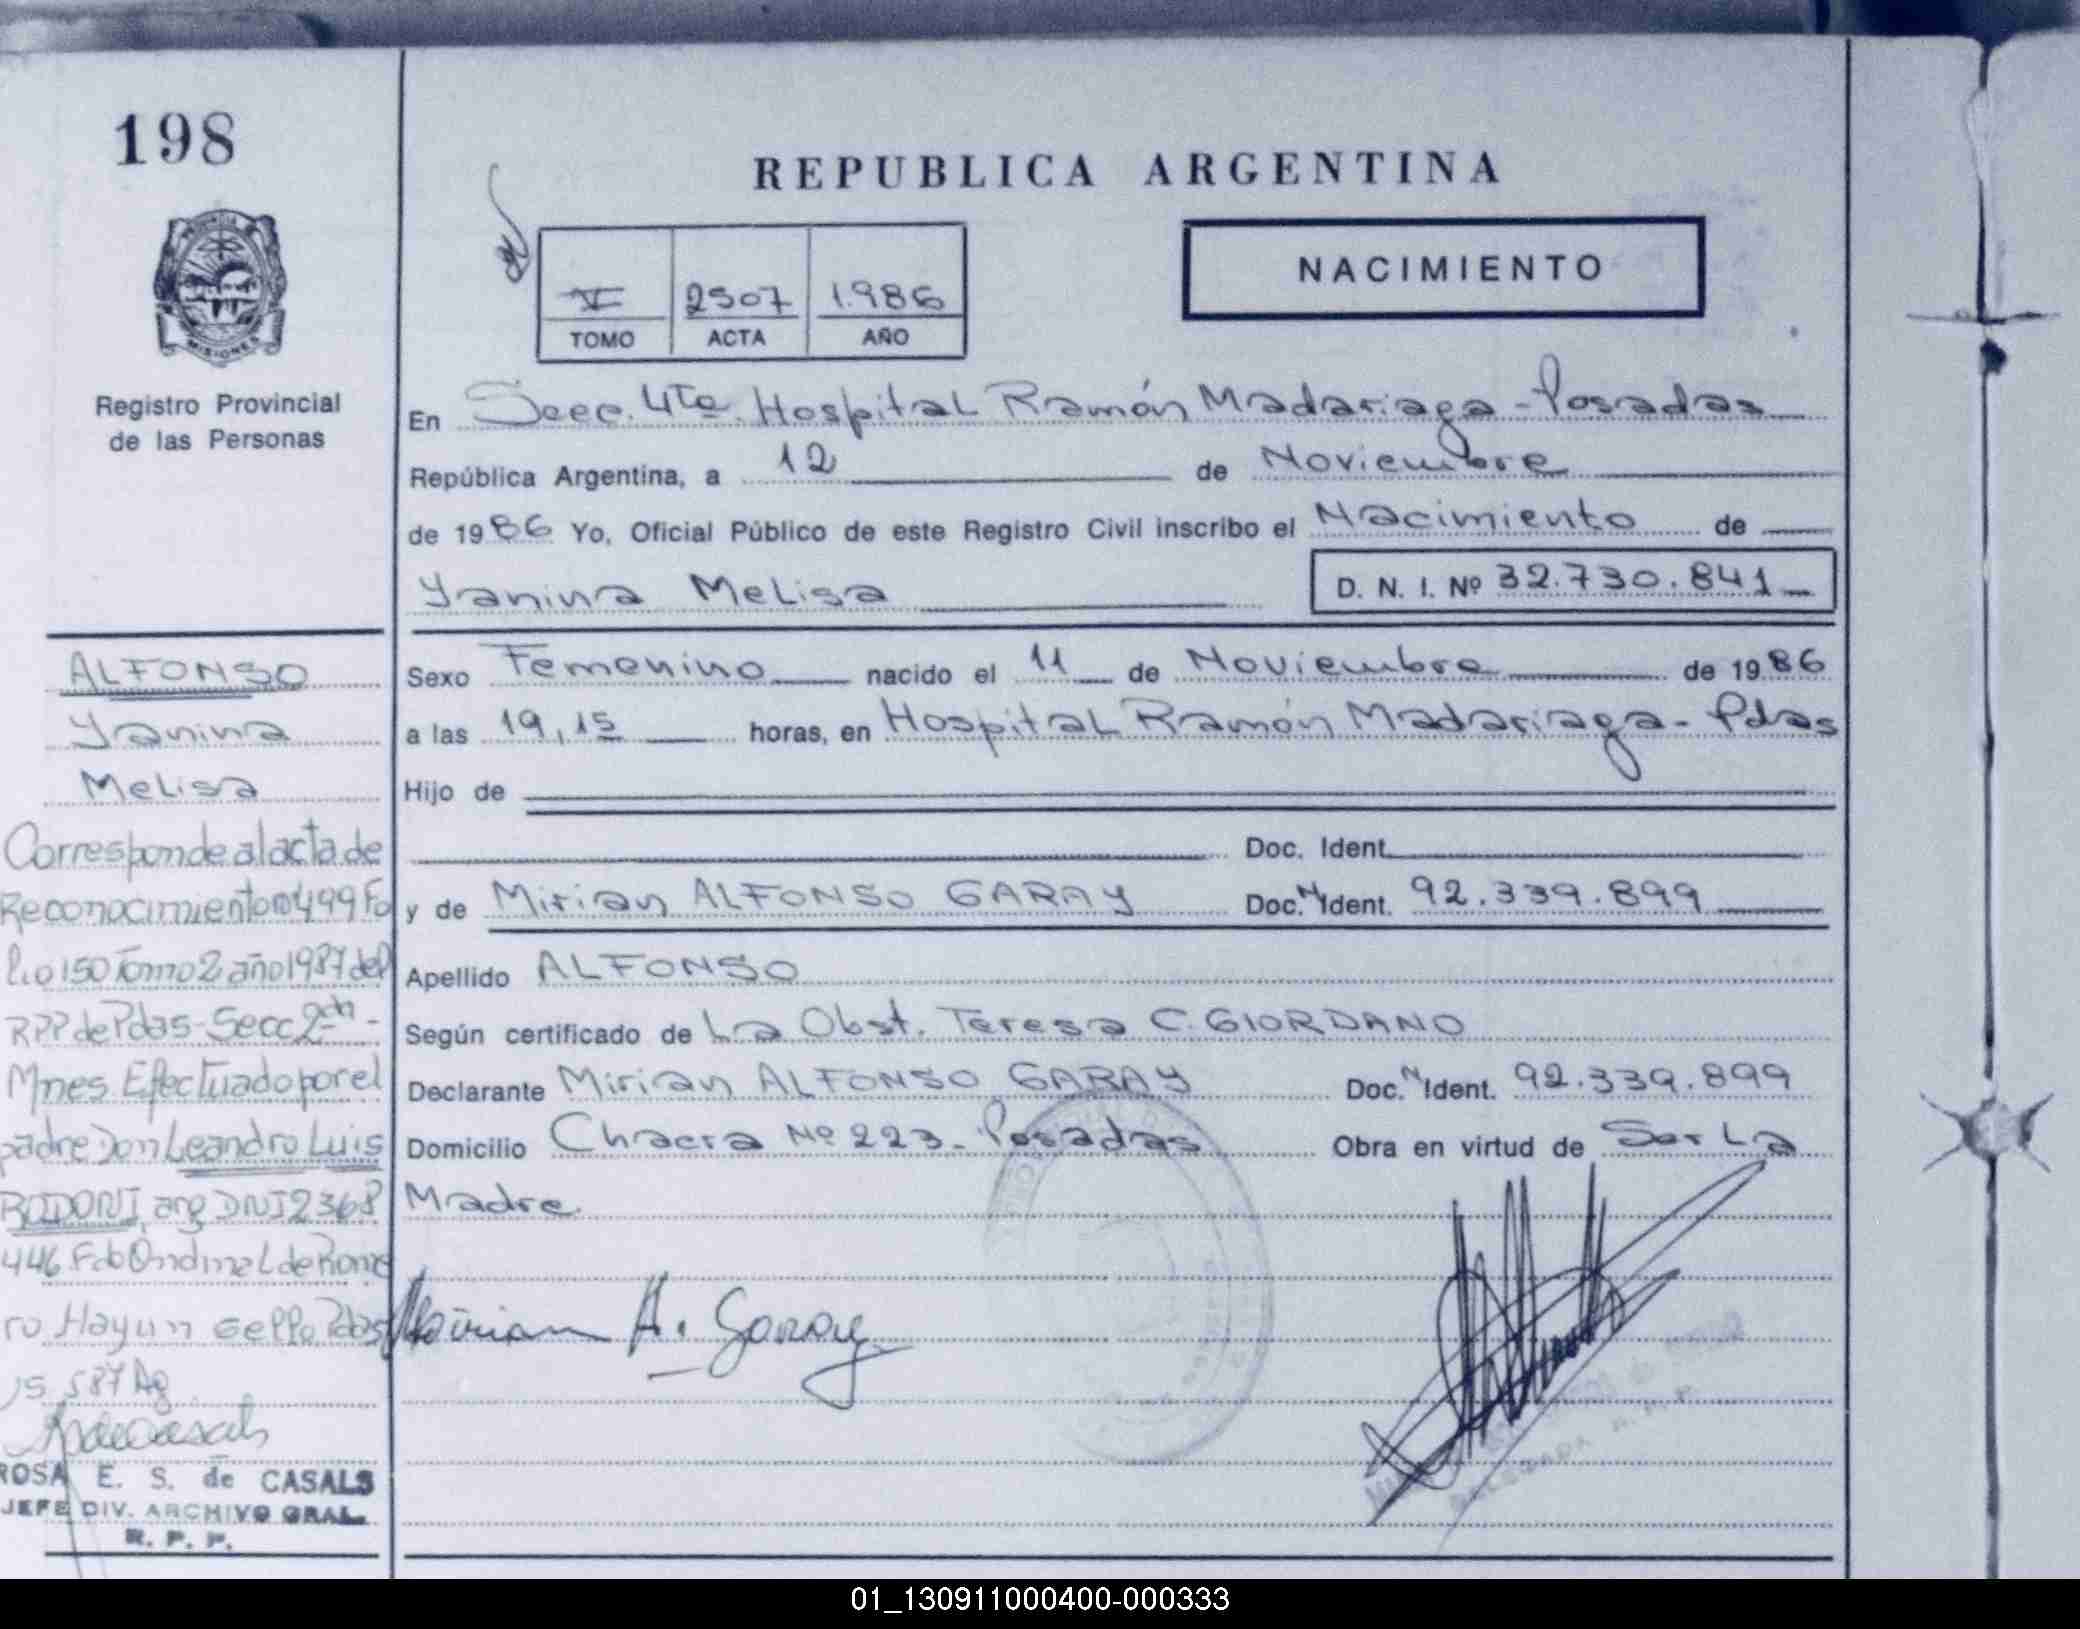 198
REPUBLICA ARGENTINA
NACIMIENTO
V 2507 1.986
TOMO ACTA AÑO
PROVINCIA
MISIONES
Registro Provincial
de las Personas
En Secc. 4ta. Hospital Ramón Madariaga - Posadas
República Argentina, a 12 de Noviembre
de 1986 Yo, Oficial Público de este Registro Civil inscribo el Nacimiento de
Yanina Melisa
D. N. I. Nº 32.730.841
Sexo Femenino nacido el 11 de Noviembre de 1986
a las 19,15 horas, en Hospital Ramón Madariaga - Pdas
Hijo de
Doc. Ident.
y de Mirian ALFONSO GARAY Doc. N Ident. 92.339.899
Apellido ALFONSO
Según certificado de La Obst. Teresa C. GIORDANO
Declarante Mirian ALFONSO GARAY Doc. N Ident. 92.339.899
Domicilio Chacra Nº 223 - Posadas Obra en virtud de Ser La
Madre
Mirian A. Garay
ALFONSO
Yanina
Melisa
Corresponde al acta de
Reconocimiento 499 Fo
lio 150 Tomo 2 año 1987 del
RPP de Pdas - Secc 2
Mnes. Efectuado por el
padre Don Leandro Luis
BODONI, arg DNI 2368
446
Pdas
15 587
ROSA E. S. de CASALS
JEFE DIV. ARCHIVO GRAL.
R. P. P.
01_130911000400-000333